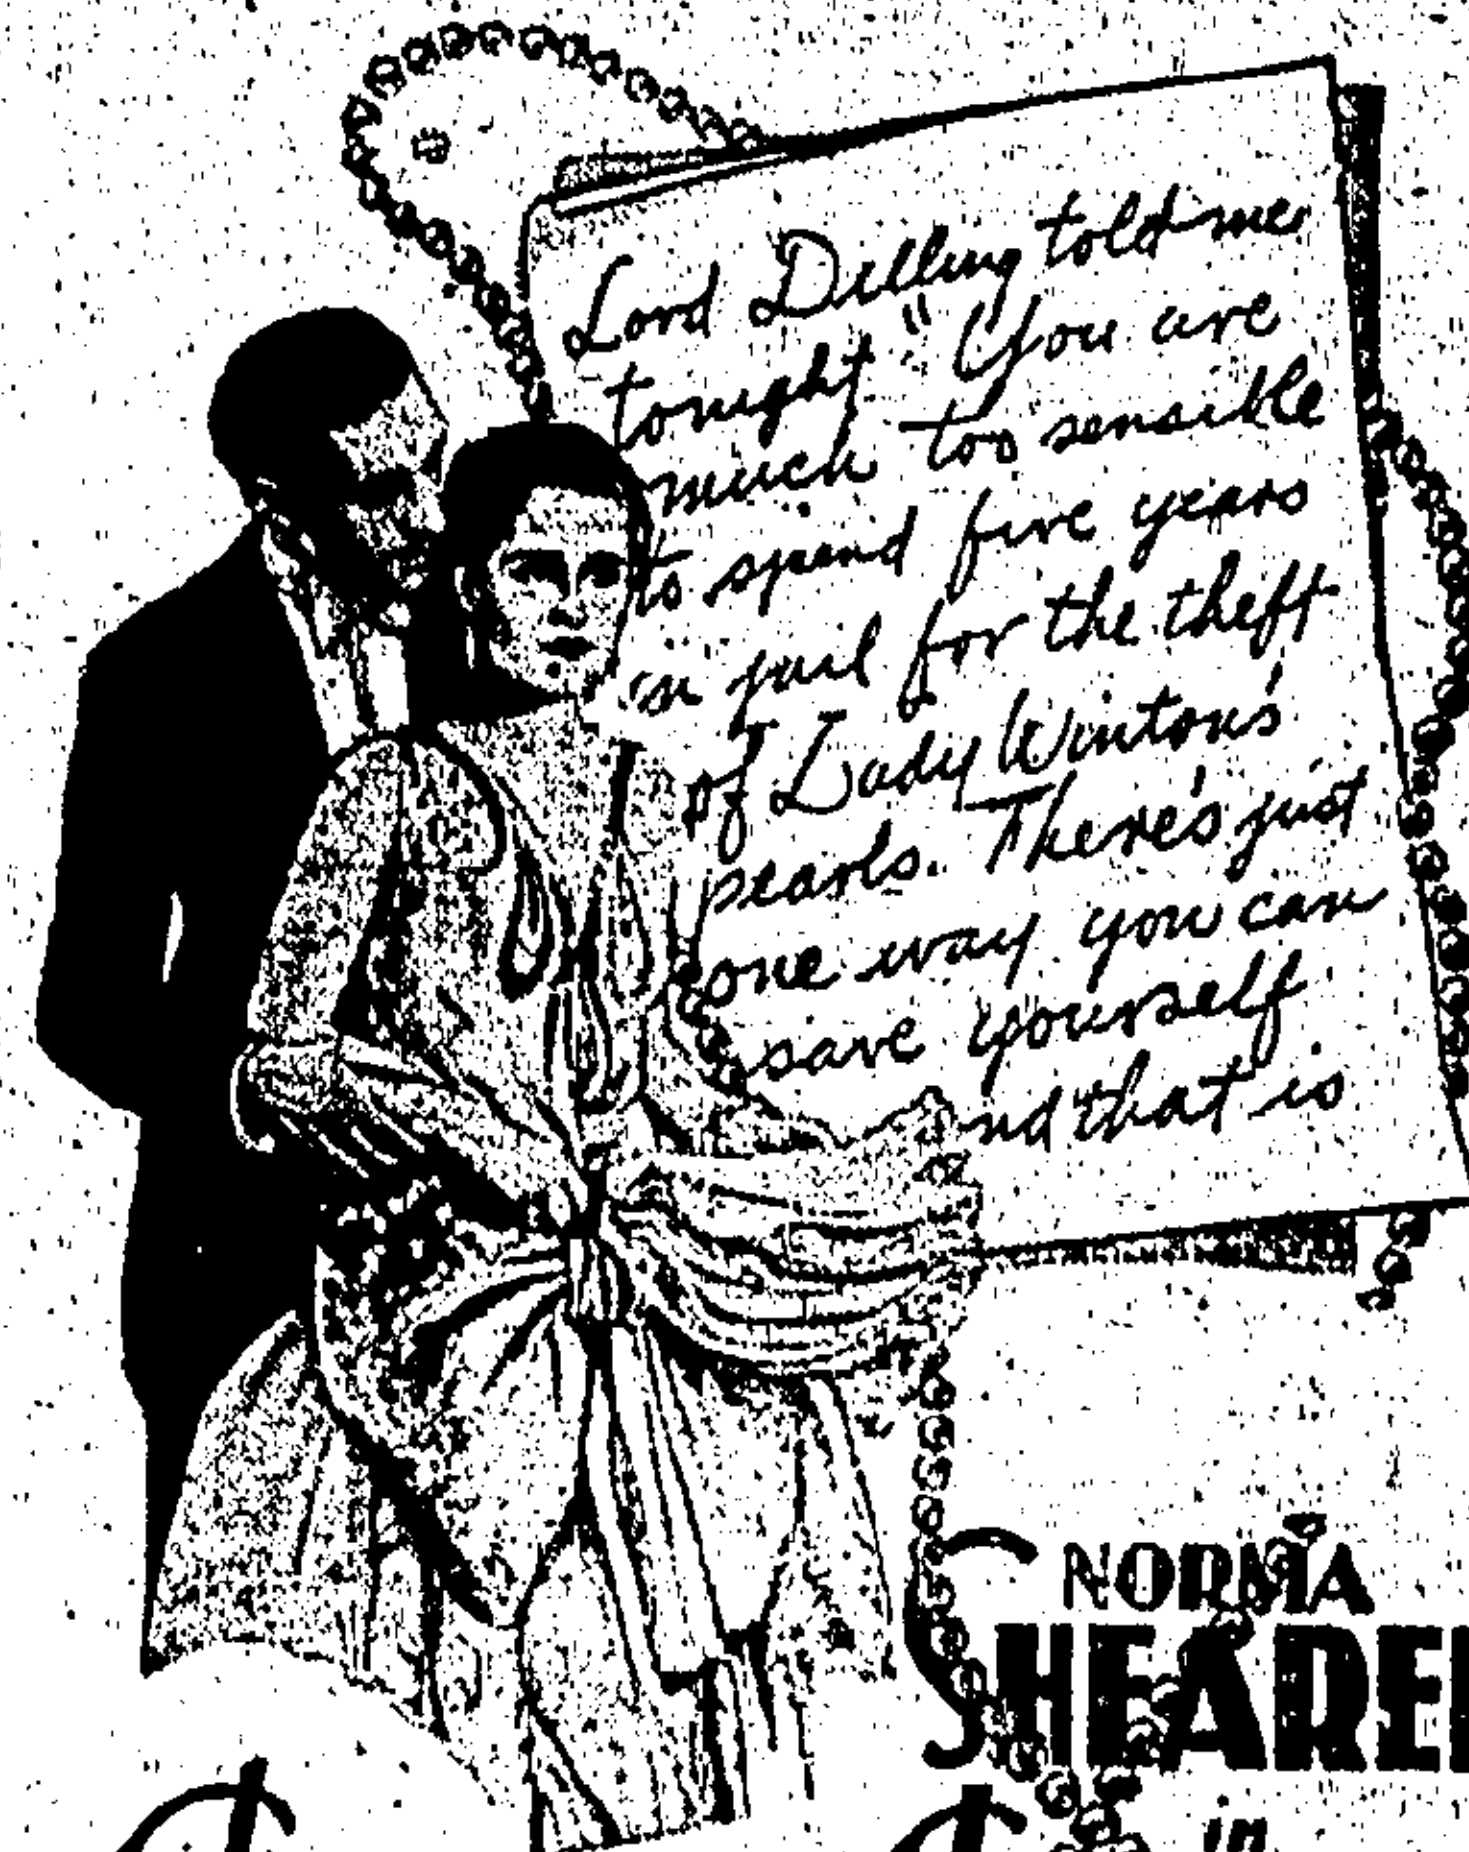 Lord Dilling told me
tonight "You are
much too sensible
to spend five years
in jail for the theft
of Lady Winton's
pearls. There's just
one way you can
save yourself
and that is
NORMA
SHEARE
in